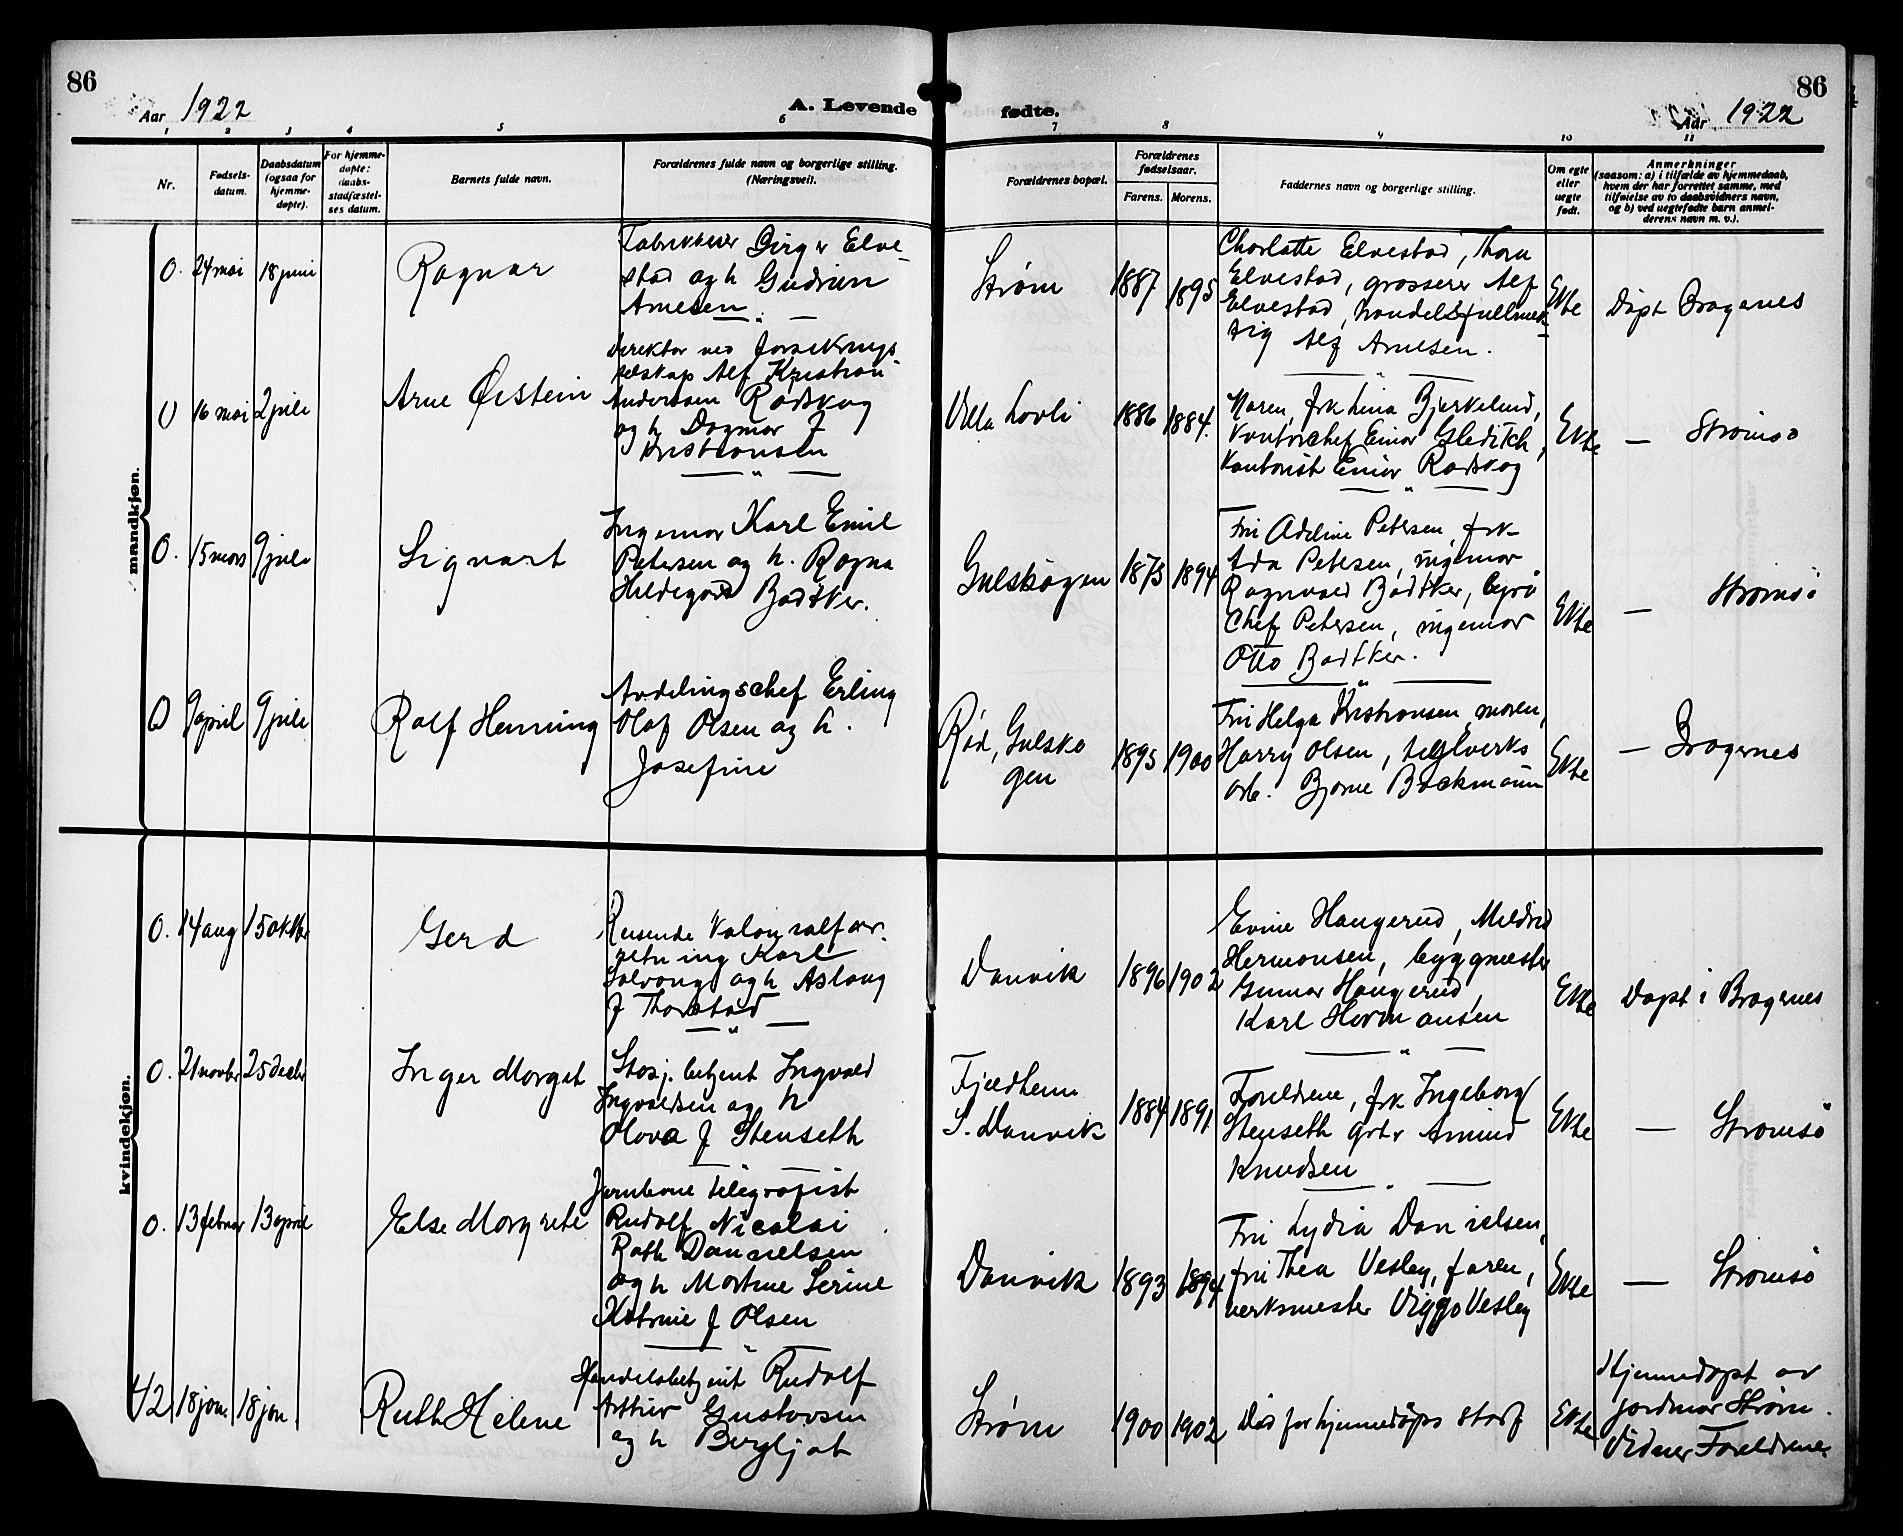 86
86
Aar 1922
A. Levende
fødte.
Aar 1922
1 2 3 4 5 6 7 8 9 10 11
Nr.
Fødsels-
datum.
Daabsdatum
(ogsaa for
hjemme-
døpte).
For hjemme-
døpte:
daabs-
stadfæstel-
ses datum.
Barnets fulde navn.
Forældrenes fulde navn og borgerlige stilling.
(Næringsvei).
Forældrenes bopæl.
Forældrenes
fødselsaar.
Farens. Morens.
Faddernes navn og borgerlige stilling.
Om egte
eller
uegte
født.
Anmerkninger
(saasom: a) i tilfælde av hjemmedaab,
hvem der har forrettet samme, med
tilføielse av to daabsvidners navn,
og b) ved uegtefødte barn anmel-
derens navn m. v.).
mandkjøn.
0. 24 mai 18 juni
Ragnar
Birger Elve-
stad og h Gudrun
Arnesen
Strøm
1887 1895
Charlotte Elvestad, Thora
Elvestad, grosserer Alf
Elvestad, handelsfullmek-
tig Alf Arnesen.
Ekte
Døpt Bragernes
0 16 mai 2 juli
Arne Øistein
Direktør ved forsikrings
selskap Alf Kristian
Andersen Rødskog
og h Dagmar f
Kristiansen
Villa Lovli
1886 1884.
Moren, frk Lina Bjerkelund,
Kontorchef Einar Gleditch,
Kontorist Einar Rødskog
Ekte
— Strømsø
0. 15 mars 9 juli
Sigvart
Ingeniør Karl Emil
Petersen og h. Ragna
Hildegard Bødtker.
Gulskogen
1873 1894
Fru Adeline Petersen, frk
Ada Petersen, ingeniør
Ragnvald Bødtker, byrå
Chef Petersen, ingeniør
Otto Bødtker.
Ekte
— Strømsø
0 9 april 9 juli
Rolf Henning
Avdelingschef Erling
Olaf Olsen og h.
Josefine
Rød, Gulsko
gen
1895 1900
Fru Helga Kristiansen, moren,
Harry Olsen, teglverks
arb. Bjarne Backmann
Ekte
— Bragernes
kvindekjøn.
0. 14 aug 15 oktbr
Gerd
Reisende
retning Karl
og h Aslaug
f Thorstad
Danvik
1896 1902
Evine Haugerud, Mildrid
Hermansen, byggmester
Gunnar Haugerud,
Karl Hermansen
Ekte
Døpt i Bragernes
0. 21 novbr 25 decbr
Inger Margit
Stasj. betjent Ingvald
Ingvaldsen og h
Olova f Stenseth
Fjeldheim
S. Danvik
1884 1891
Foreldrene, frk Ingeborg
Stenseth grbr
Knudsen
Ekte
— Strømsø
0. 13 februar 13 april
Else Margrete
Jernbane telegrafist
Rudolf Nicolai
Rath Danielsen
og h Martine Serine
Katrine f Olsen
Danvik
1893 1894
Fru Lydia Danielsen,
fru Thea Vesley, faren,
verksmester Viggo Vesley
Ekte
— Strømsø
42 18 jan. 18 jan.
Ruth Helene
Handelsbetjent Rudolf
Arthur Gustavsen
og h Bergljot
Strøm
1900 1902
Død før hjemmedåps stadf
Ekte
Hjemmedøpt av
jordmor Strøm.
Vidner Foreldrene.